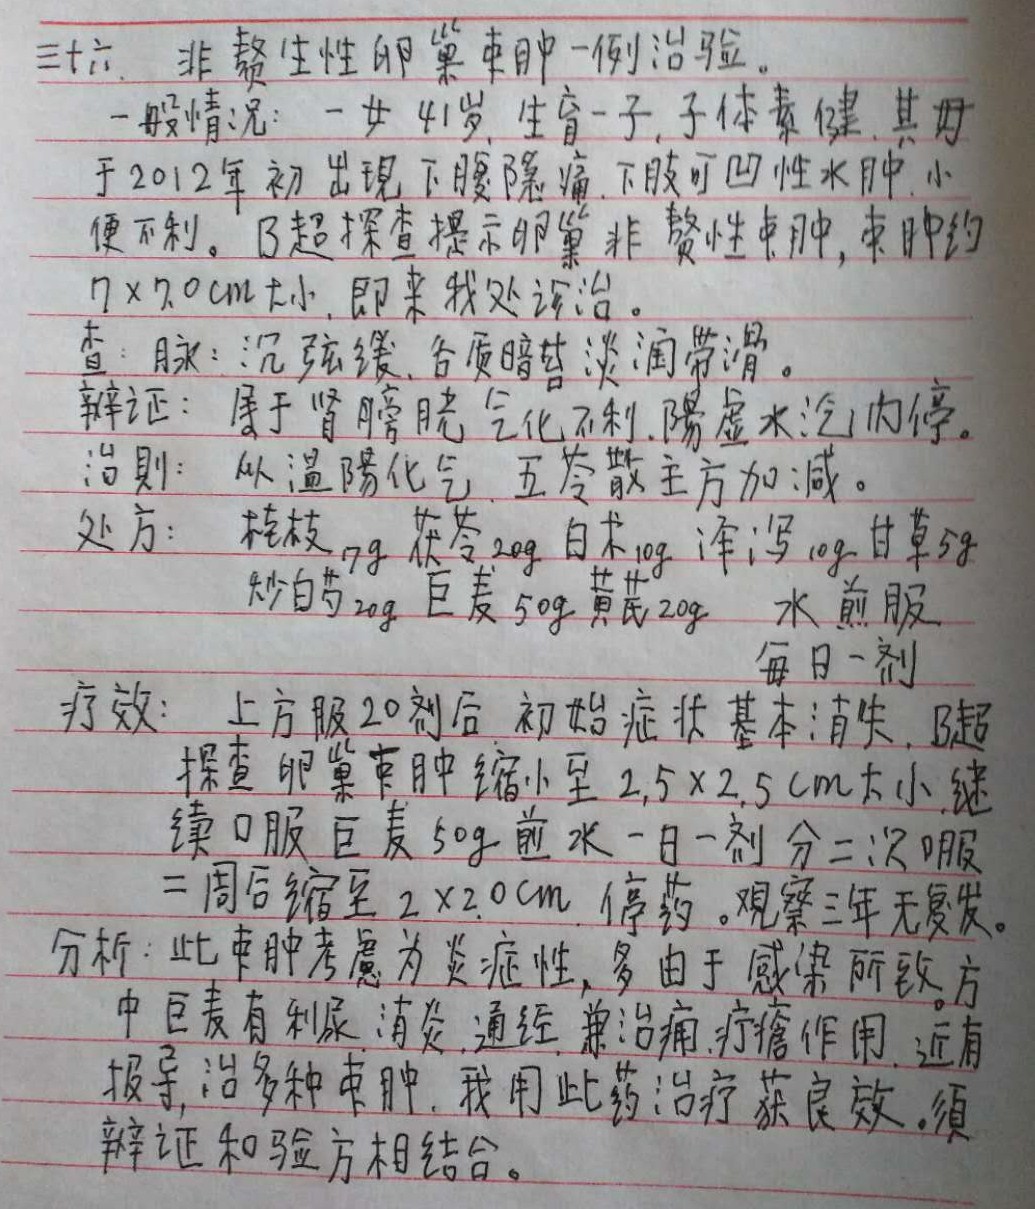 三十六、非赘生性卵巢朿肿一例治验。
一般情况：一女41岁，生育一子，子体素健，其母
于2012年初出現下腹隐痛、下肢可凹性水肿，小
便不利。B超探查提示卵巢非赘性朿肿，朿肿约
7×7.0cm大小，即来我处诊治。
查：脉：沉弦缓、舌质暗苔淡润带滑。
辨证：属于肾膀胱气化不利、陽虚水汽内停。
治則：以温陽化气、五苓散主方加减。
处方：桂枝17g 茯苓20g 白术10g 泽泻10g 甘草5g
炒白芍20g 巨麦50g 黄芪20g 水煎服
每日一剂
疗效：上方服20剂后，初始症状基本消失，B超
探查卵巢朿肿缩小至2.5×2.5cm大小，继
续口服巨麦50g煎水一日一剂分二次口服
二周后缩至2×2.0cm，停药。观察三年无复发。
分析：此朿肿考慮为炎症性，多由于感染所致。方
中巨麦有利尿、消炎、通经、兼治痈、疗瘡作用，近有
报导，治多种朿肿，我用此药治疗获良效。須
辨证和验方相结合。